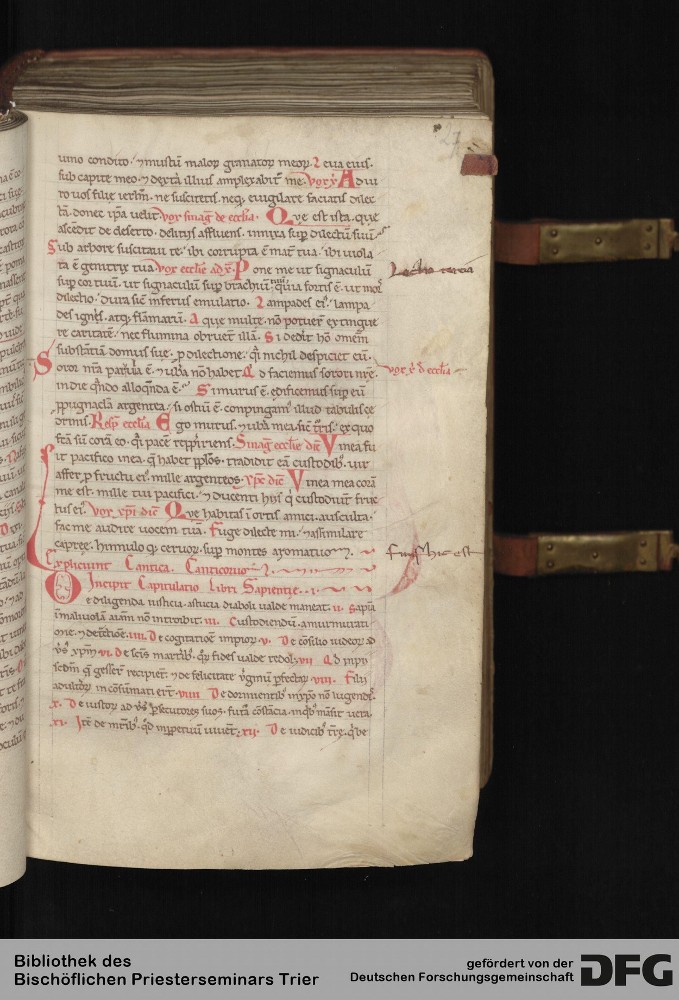 27
uino condito· ⁊ mustū maloꝝ granatoꝝ meoꝝ. Leua eius·
sub capite meo· ⁊ dext̄a illius amplexabit᷑ me· vox x̄ Adiu
ro uos filie ierl̄m· ne suscitetis neq; euigilare faciatis dilec
tā· donec ip̄a uelit· vox sinaḡ de eccl̄ia· Que est ista que
ascēdit de deserto· delitiis affluens· innixa sup̄ dilectū suū·
Sub arbore suscitaui te· ibi corrupta ē mat̄ tua· ibi uiola
ta ē genitrix tua· vox eccl̄ie ad x̄· Pone me ut signaculū
sup̄ cor tuū· ut signaculū sup̄ brachiū tuū· quia fortis ē ut mors
dilectio· dura sic̄ inferus emulatio· Lampades ei᷒· lampa
des ignis· atq; flāmarū· Aque multe· nō potuer̄ extingue
re caritatē· nec flumina obruent illā· Si dederit hō omēm
substantiā domus sue· p̄ dilectione· q̄i nichil despiciet eū·
Soror nr̄a paruula ē· ⁊ ubera nō habet· Qd̄ faciemus sorori nr̄e·
in die q̄ndo alloquēda ē· Si murus ē· edificemus sup̄ eū
p̄pugnacl̄a argentea· si ostiū ē· conpingam᷒ illud tabulis ce
drinis· Resp̄ eccl̄ia Ego murus· ⁊ ubera mea· sic̄ turris· ex quo
facta sū corā eo· q̄i pacē repperiens· Sinaḡ eccl̄ie dic̄ Vinea fu
it pacifico inea· que habet pp̄los· tradidit eā custodib᷒· uir
affert p̄ fructu ei᷒· mille argenteos· xp̄c dic̄ Vinea mea corā
me est· mille tui pacifici· ⁊ ducenti his qui custodiunt fruc
tus ei᷒· Vox xp̄i dic̄ Que habitas in ortis· amici auscultant·
fac me audire uocem tuā· Fuge dilecte mi· ⁊ assimilare
capree· hinnulo q; ceruoꝝ· sup̄ montes aromatum·
Expliciunt Cantica Canticorum·
Incipit Capitulatio Libri Sapientie· ·i·
De diligenda iusticia· astucia diaboli ualde maneat· ii· sapia
in maliuolā aīam nō introibit· iii· Custodiendū a murmurati
one· ⁊ det̄ctione· iiii· De cogitatioē impioꝝ· v· De cōsilio iudeoꝝ ad
ūs᷒ xp̄m· vi· De sc̄is martirib᷒· quoꝝ fides ualde redol̄· vii· Qd̄ impii
scd̄m que gesser̄t recipient· ⁊ de felicitate uirginū pfectaꝝ· viii· Filii
adulteroꝝ in cōsūmati erūt· viiii· De dormientib᷒ in xp̄o nō lugendis·
x· De iustoꝝ ad ūs᷒ persecutores suos· futura cōstācia· in quib᷒ māsit uera·
xi· Itē de mr̄ib᷒· qd̄ in perpetuū uiuent· xii· De iudicib᷒ tr̄e· quibe
Lectio tercia
vox x̄ d̄ eccl̄ia
finis hic est
Bibliothek des
Bischöflichen Priesterseminars Trier
gefördert von der
Deutschen Forschungsgemeinschaft
DFG